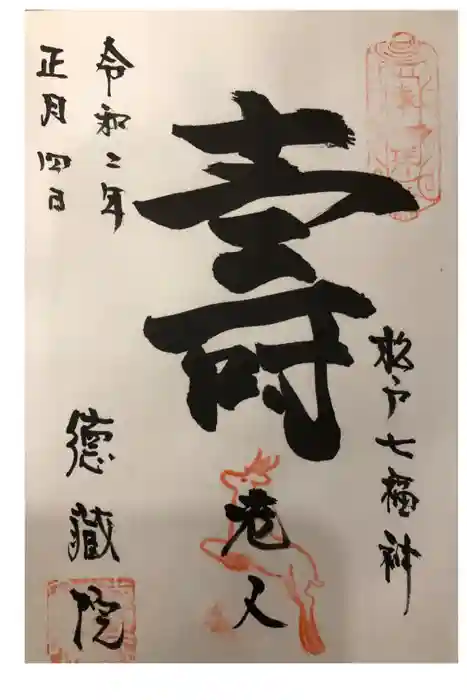 松戸七福神
壽老人
令和二年
正月四日
德藏院